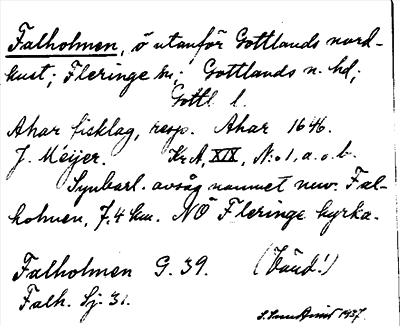 Falholmen, ö utanför Gottlands nord-
kust; Fleringe sn; Gottlands n. hd;
Gottl. l.
Ahar fisklag, resp. Ahar 1646.
J. Meijer. Kr A, XIX, N:o 1, a. o. b.
Synbarl. avsåg namnet nuv. Fal-
holmen, 7,4 km. NÖ Fleringe kyrka.
Falholmen G. 39. (Vänd!)
Falh. Sj. 31.
1937.